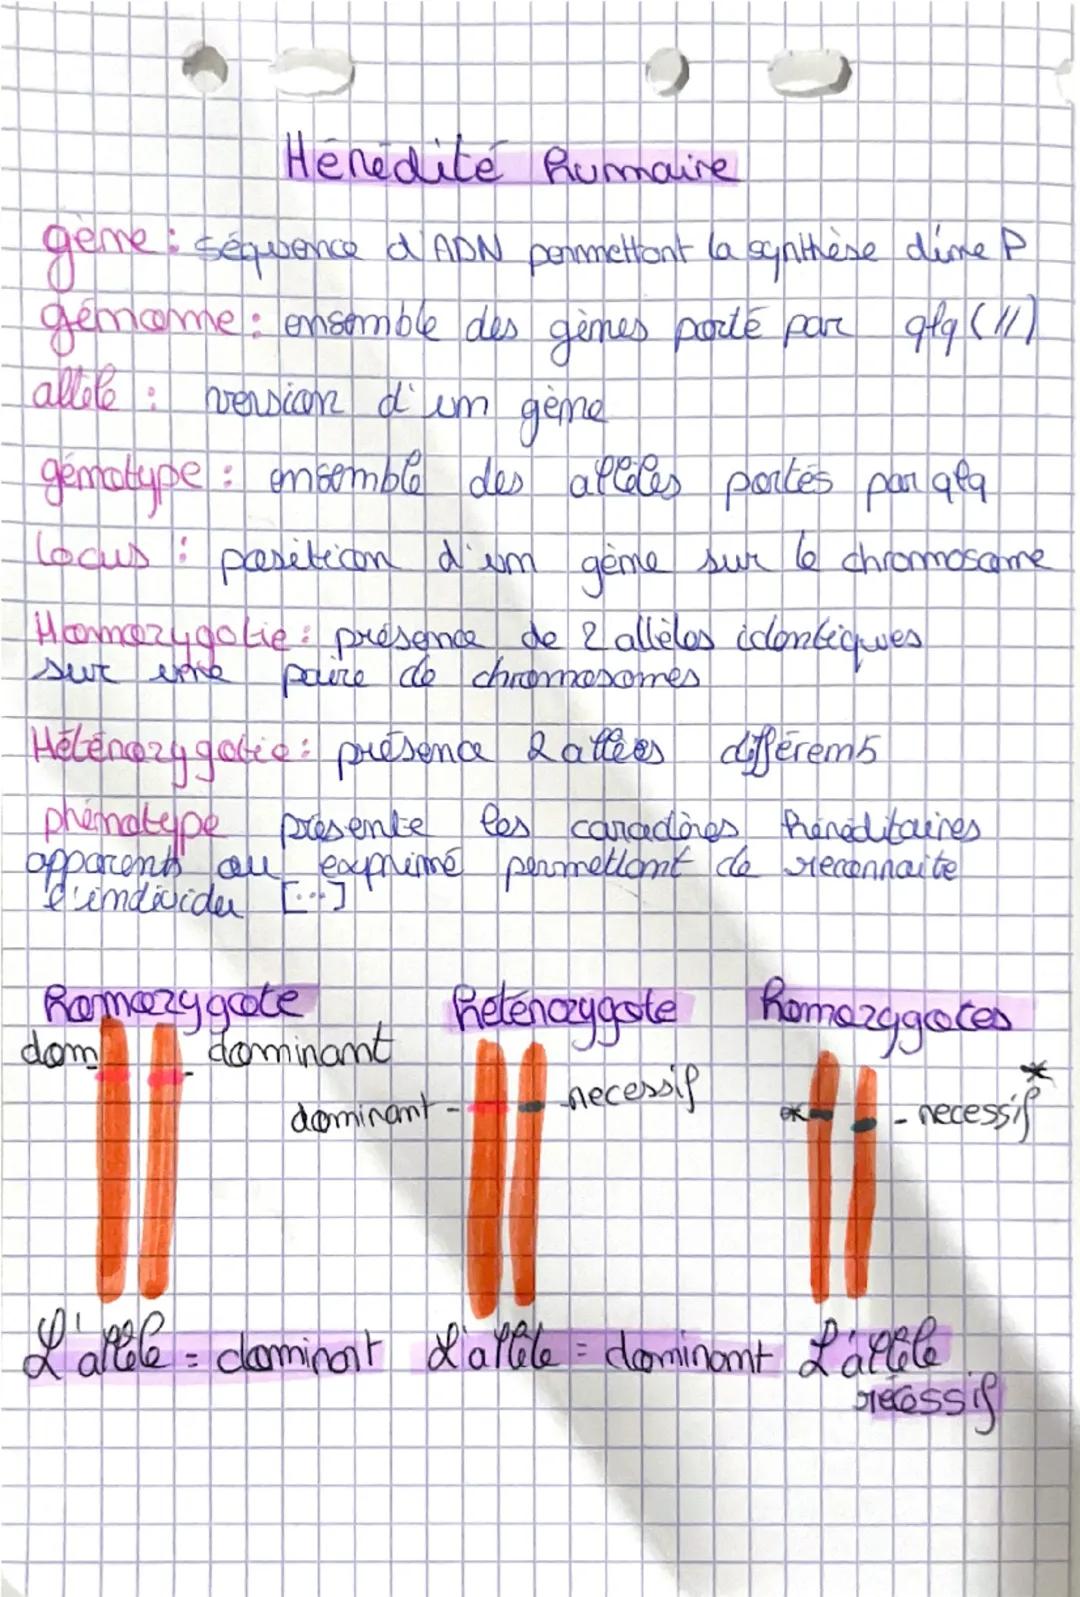 Hérédité humaine
gène : séquence d'ADN permettant la synthèse d'une P
génome : ensemble des gènes porté par qlq (11)
allèle : version d'un gène
génotype : ensemble des allèles portés par qlq
Locus : position d'un gène sur le chromosome
Homozygotie : présence de 2 allèles identiques
sur une paire de chromosomes
Hétérozygotie : présence 2 allèes différents
phénotype présente les caractères héréditaires
apparents ou exprimé permettant de reconnaite
l'individu [...]
homozygote hétérozygote homozygotes
dom - - dominant
dominant - - recessif
* - - recessif *
L'allèle = dominant L'allèle = dominant L'allèle
récessif